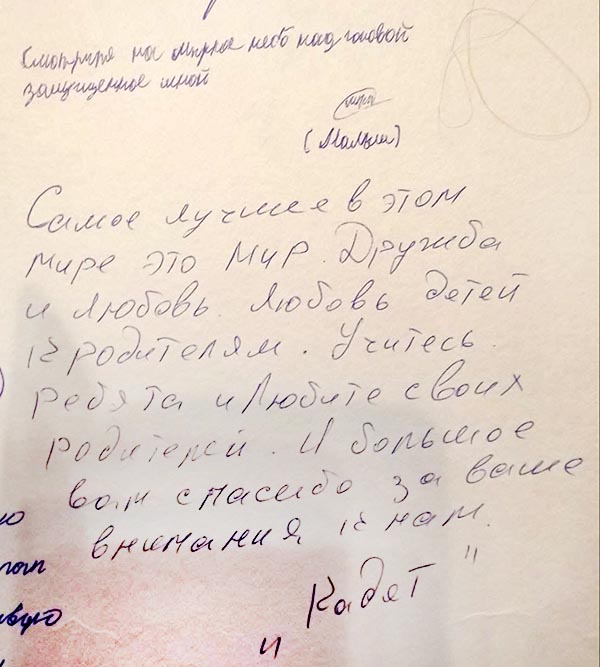 Смотрите на мирное небо над головой
защищенное мной
(Малыш)
Самое лучшее в этом
мире это мир. Дружба
и любовь. Любовь детей
к родителям. Учитесь
ребята и любите своих
родителей. И большое
вам спасибо за ваше
внимания к нам.
"Кадет"